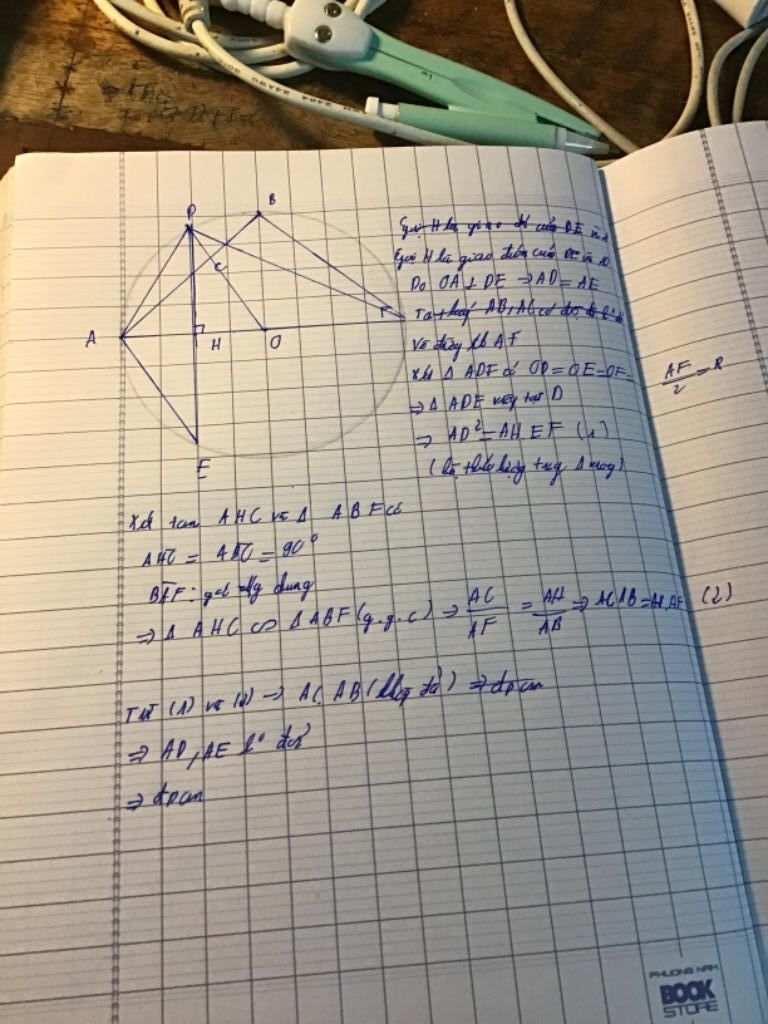 D
B
C
A
H
O
F
E
Gọi H là giao điểm của DE và
Gọi H là giao điểm của DE và
Do OA ⊥ DE ⇒ AD = AE
Ta thấy AB, AC có
Vẽ đường kb AF
Xét Δ ADF có OD = OE = OF = AF/2 = R
⇒ Δ ADE vuông tại D
⇒ AD² = AH.EF (1)
(hệ thức lượng trong Δ vuông)
Xét tam AHC và Δ ABF có
AHC = ABC = 90°
BAF: góc chung
⇒ Δ AHC ∽ Δ ABF (g.g.c) ⇒ AC/AF = AH/AB ⇒ AC.AB = AH.AF (2)
Từ (1) và (2) ⇒ AC.AB ( ) ⇒ đpcm
⇒ AD, AE
⇒ đpcm
PHUONG NAM
BOOK
STORE